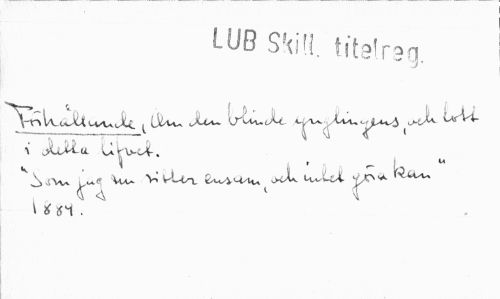 LUB Skill. titelreg.
Förhållande, Om den blinde ynglingens, och lott
i detta lifvet.
"Som jag nu sitter ensam, och intet göra kan"
1884.